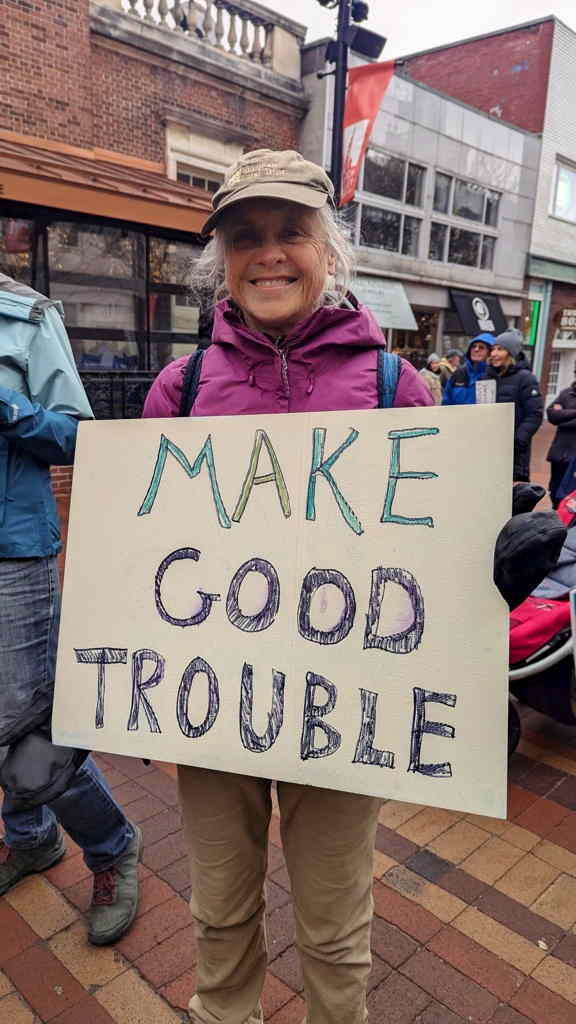 MAKE
GOOD
TROUBLE